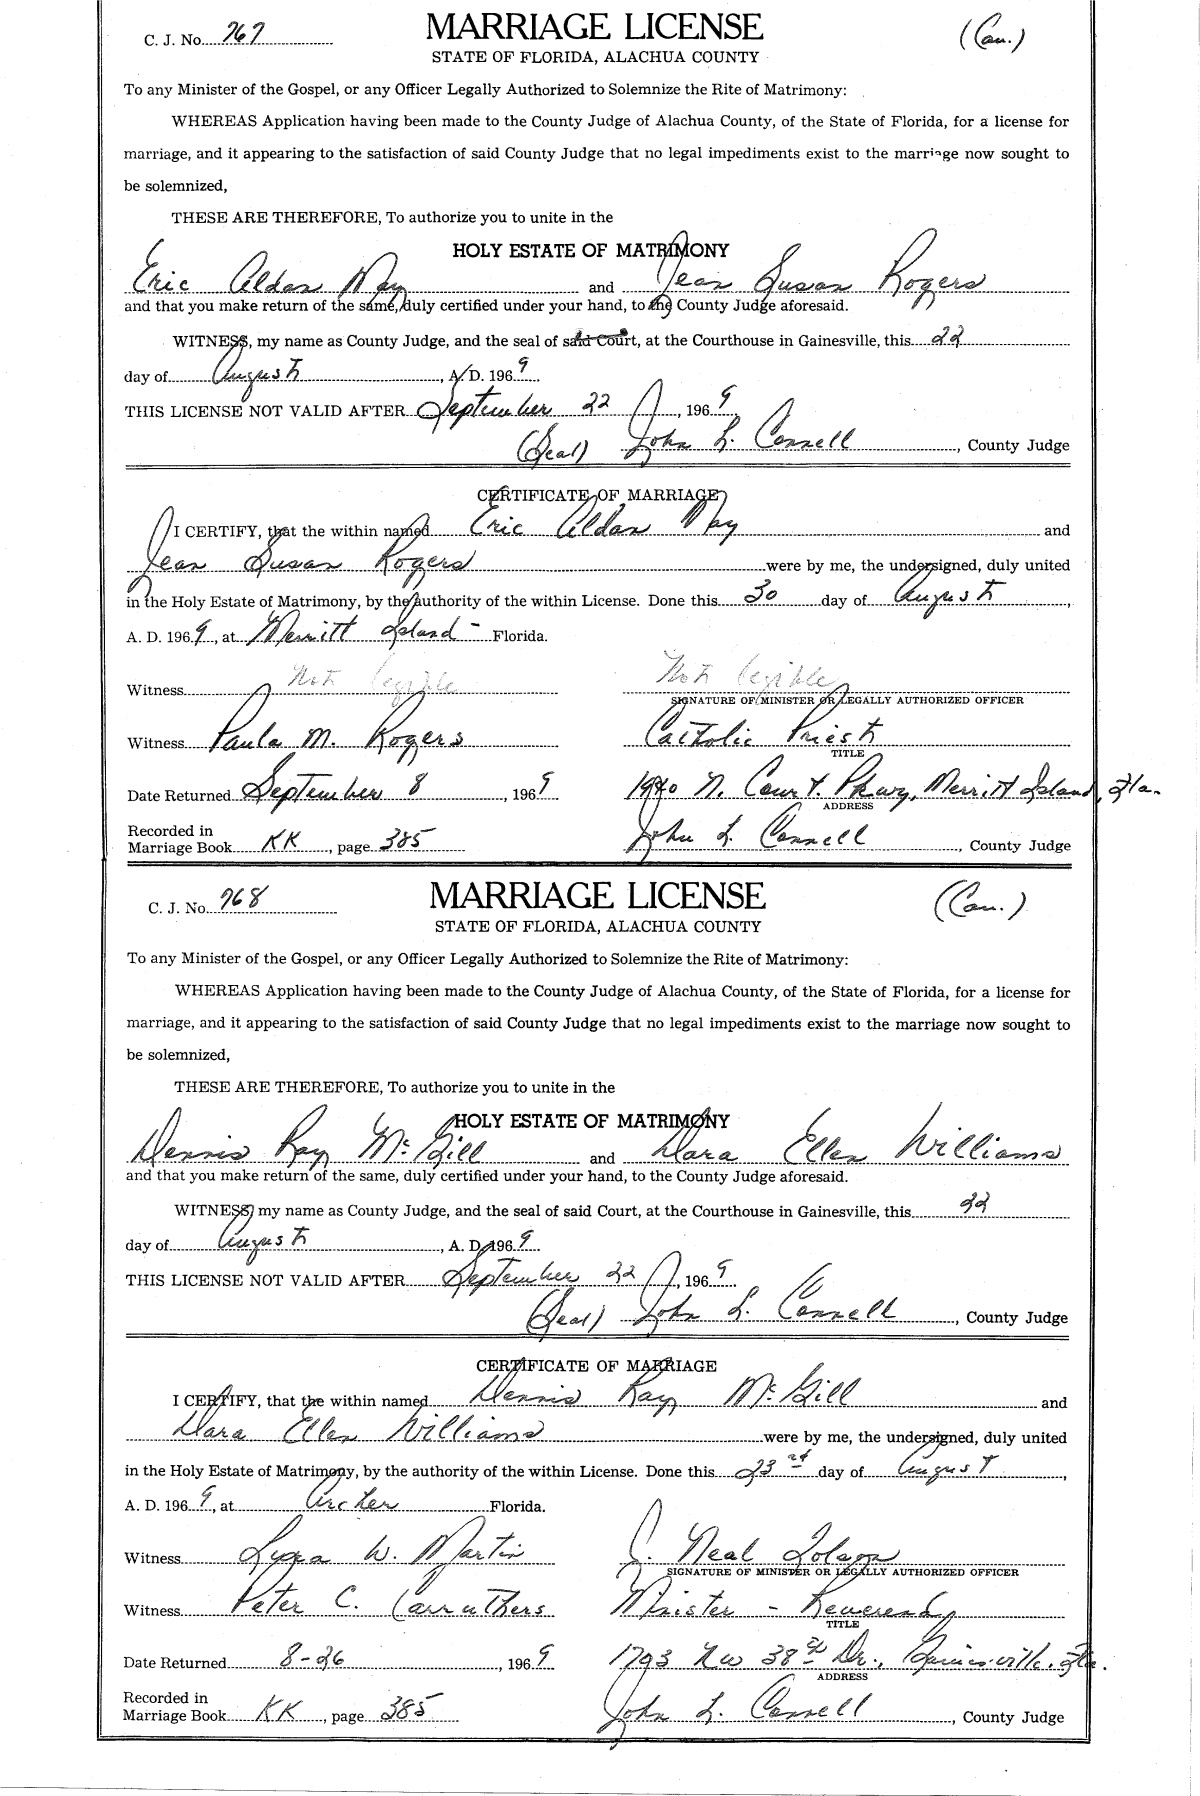 C. J. No. 767 MARRIAGE LICENSE (Cau.)
STATE OF FLORIDA, ALACHUA COUNTY
To any Minister of the Gospel, or any Officer Legally Authorized to Solemnize the Rite of Matrimony:
WHEREAS Application having been made to the County Judge of Alachua County, of the State of Florida, for a license for
marriage, and it appearing to the satisfaction of said County Judge that no legal impediments exist to the marriage now sought to
be solemnized,
THESE ARE THEREFORE, To authorize you to unite in the
HOLY ESTATE OF MATRIMONY
Eric Aldan May and Jean Susan Rogers
and that you make return of the same, duly certified under your hand, to the County Judge aforesaid.
WITNESS, my name as County Judge, and the seal of said Court, at the Courthouse in Gainesville, this 22
day of August, A. D. 1969
THIS LICENSE NOT VALID AFTER September 22, 1969
(Seal) John L. Connell, County Judge
CERTIFICATE OF MARRIAGE
I CERTIFY, that the within named Eric Aldan May and
Jean Susan Rogers were by me, the undersigned, duly united
in the Holy Estate of Matrimony, by the authority of the within License. Done this 30 day of August,
A. D. 1969, at Merritt Island - Florida.
Witness Not legible Not legible
SIGNATURE OF MINISTER OR LEGALLY AUTHORIZED OFFICER
Witness Paula M. Rogers Catholic Priest
TITLE
Date Returned September 8, 1969 N. Court. Pkwy, Merritt Island, Fla.
ADDRESS
Recorded in
Marriage Book KK, page 385 John L. Connell, County Judge
C. J. No. 768 MARRIAGE LICENSE (Cau.)
STATE OF FLORIDA, ALACHUA COUNTY
To any Minister of the Gospel, or any Officer Legally Authorized to Solemnize the Rite of Matrimony:
WHEREAS Application having been made to the County Judge of Alachua County, of the State of Florida, for a license for
marriage, and it appearing to the satisfaction of said County Judge that no legal impediments exist to the marriage now sought to
be solemnized,
THESE ARE THEREFORE, To authorize you to unite in the
HOLY ESTATE OF MATRIMONY
Dennis Ray McGill and Dara Ellen Williams
and that you make return of the same, duly certified under your hand, to the County Judge aforesaid.
WITNESS, my name as County Judge, and the seal of said Court, at the Courthouse in Gainesville, this 22
day of August, A. D. 1969
THIS LICENSE NOT VALID AFTER September 22, 1969
(Seal) John L. Connell, County Judge
CERTIFICATE OF MARRIAGE
I CERTIFY, that the within named Dennis Ray McGill and
Dara Ellen Williams were by me, the undersigned, duly united
in the Holy Estate of Matrimony, by the authority of the within License. Done this 23rd day of August,
A. D. 1969, at Archer Florida.
Witness W. Martin J. Neal Tolson
SIGNATURE OF MINISTER OR LEGALLY AUTHORIZED OFFICER
Witness Peter C. Carruthers Minister - Reverend
TITLE
Date Returned 8-26, 1969 1793 NW 38th Dr., Gainesville, Fla.
ADDRESS
Recorded in
Marriage Book KK, page 385 John L. Connell, County Judge